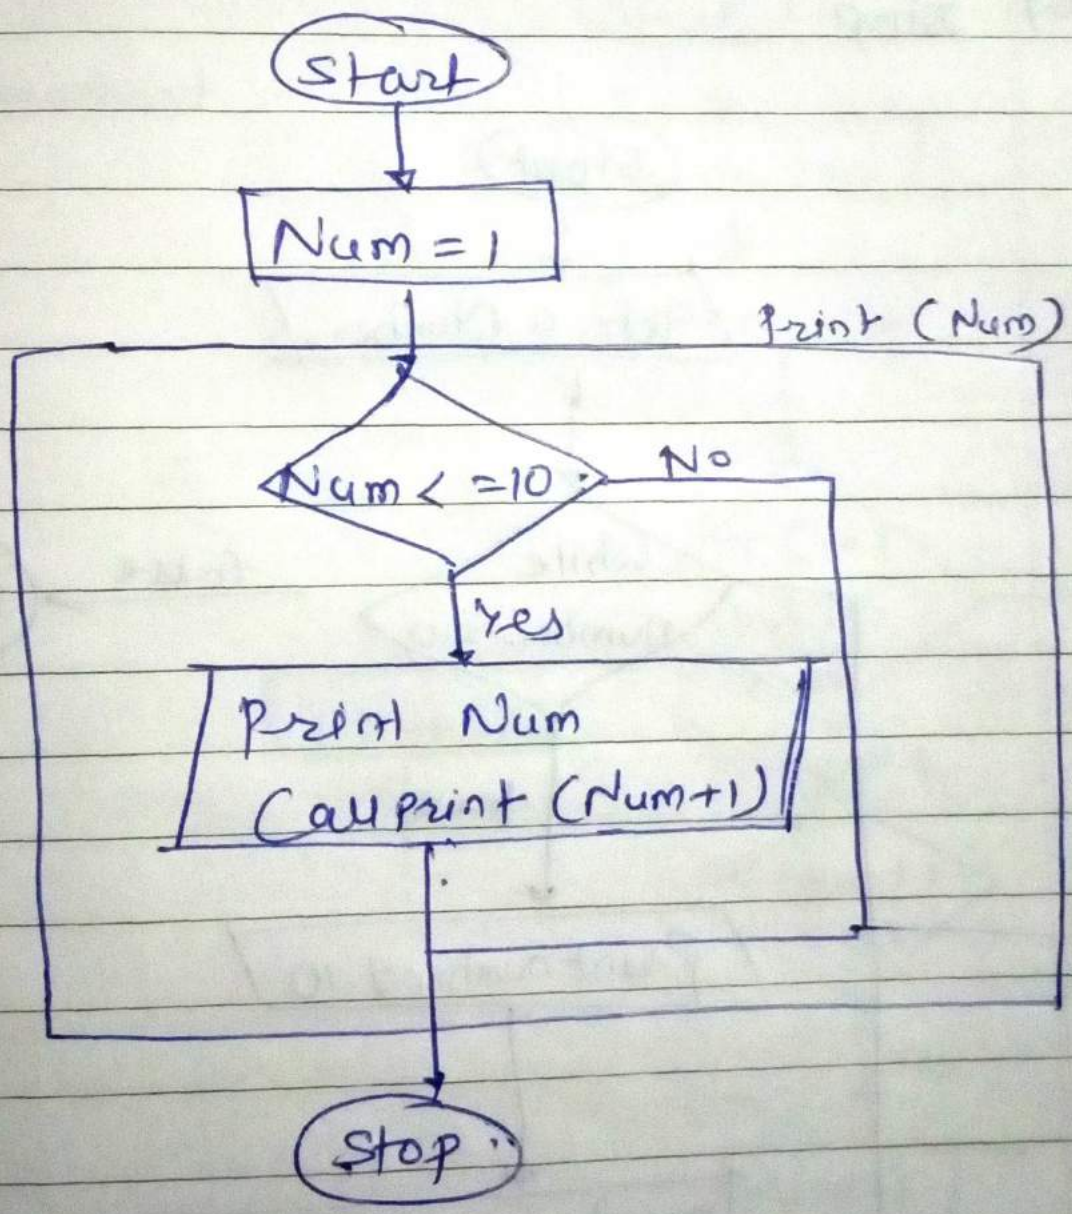 Start
Num = 1
Print (Num)
Num < =10
No
Yes
Print Num
Call Print (Num+1)
Stop